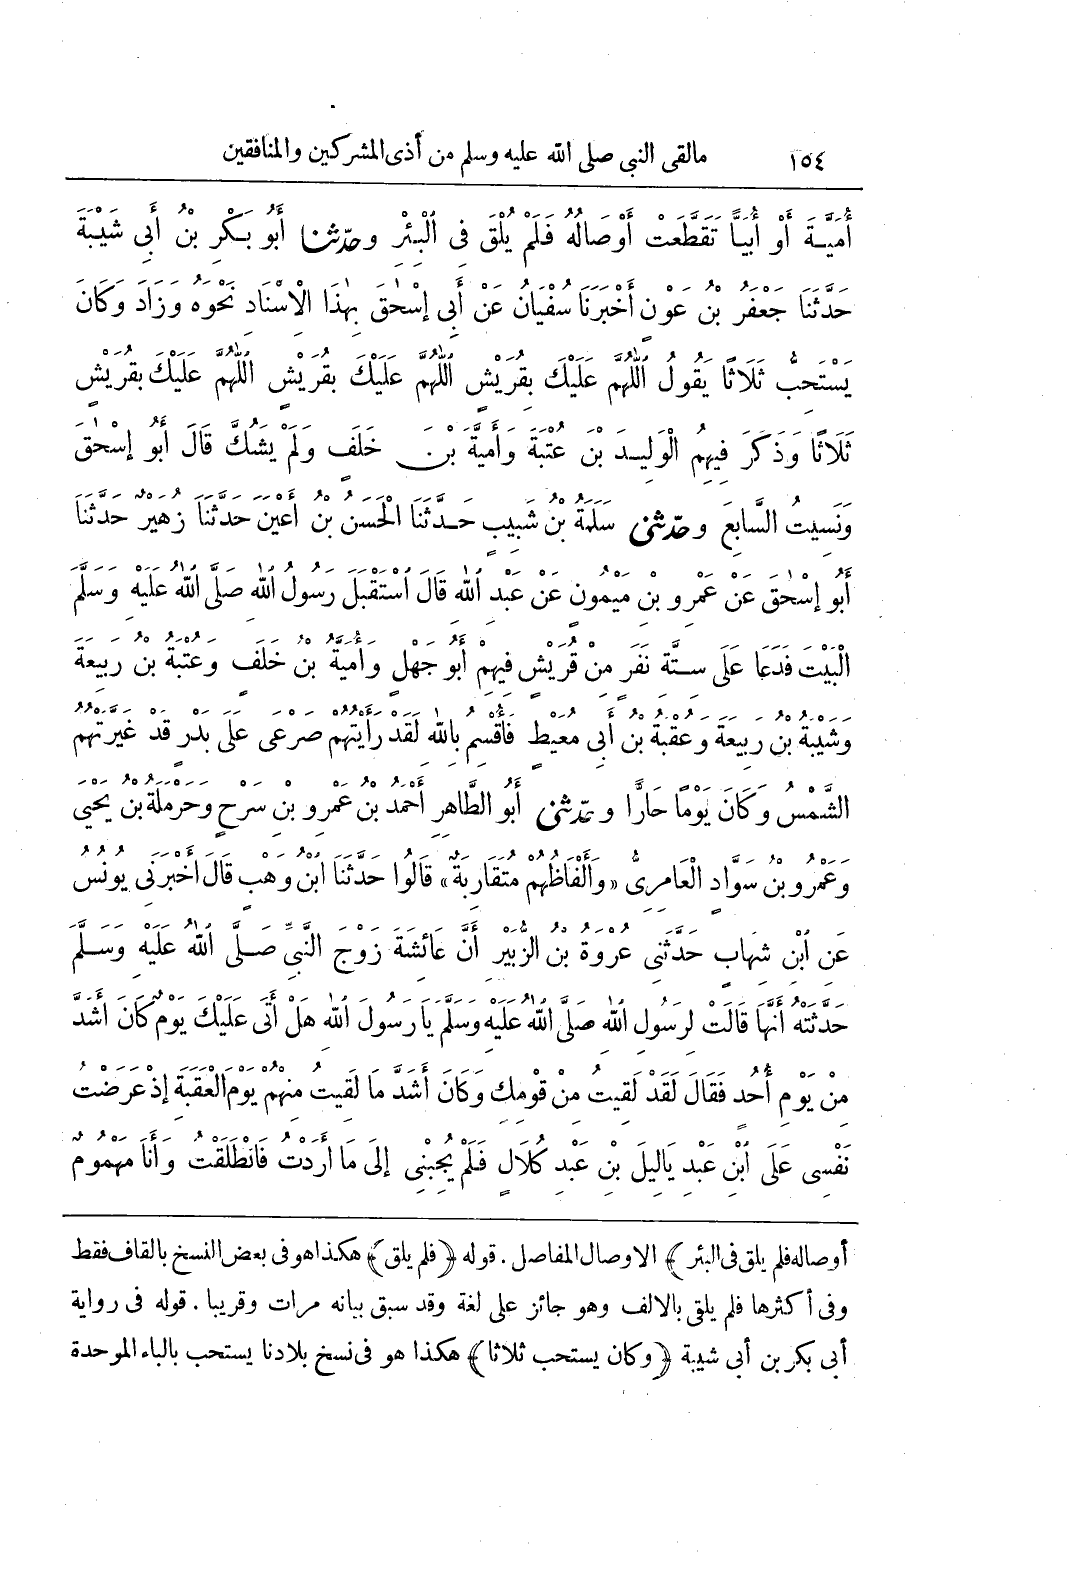 ١٥٤ مالقى النبى صلى الله عليه وسلم من أذى المشركين والمنافقين
أُمَيَّةَ أَوْ أُبَيًّا تَقَطَّعَتْ أَوْصَالُهُ فَلَمْ يُلْقَ فِى الْبِئْرِ وحدّثنا أَبُو بَكْرِ بْنُ أَبِى شَيْبَةَ
حَدَّثَنَا جَعْفَرُ بْنُ عَوْنٍ أَخْبَرَنَا سُفْيَانُ عَنْ أَبِى إِسْحٰقَ بِهٰذَا الْإِسْنَادِ نَحْوَهُ وَزَادَ وَكَانَ
يَسْتَحِبُّ ثَلَاثًا يَقُولُ اللّٰهُمَّ عَلَيْكَ بِقُرَيْشٍ اللّٰهُمَّ عَلَيْكَ بِقُرَيْشٍ اللّٰهُمَّ عَلَيْكَ بِقُرَيْشٍ
ثَلَاثًا وَذَكَرَ فِيهِمُ الْوَلِيدَ بْنَ عُتْبَةَ وَأُمَيَّةَ بْنَ خَلَفٍ وَلَمْ يَشُكَّ قَالَ أَبُو إِسْحٰقَ
وَنَسِيتُ السَّابِعَ وحدّثنى سَلَمَةُ بْنُ شَبِيبٍ حَدَّثَنَا الْحَسَنُ بْنُ أَعْيَنَ حَدَّثَنَا زُهَيْرٌ حَدَّثَنَا
أَبُو إِسْحٰقَ عَنْ عَمْرِو بْنِ مَيْمُونٍ عَنْ عَبْدِ اللّٰهِ قَالَ اسْتَقْبَلَ رَسُولُ اللّٰهِ صَلَّى اللّٰهُ عَلَيْهِ وَسَلَّمَ
الْبَيْتَ فَدَعَا عَلَى سِتَّةِ نَفَرٍ مِنْ قُرَيْشٍ فِيهِمْ أَبُو جَهْلٍ وَأُمَيَّةُ بْنُ خَلَفٍ وَعُتْبَةُ بْنُ رَبِيعَةَ
وَشَيْبَةُ بْنُ رَبِيعَةَ وَعُقْبَةُ بْنُ أَبِى مُعَيْطٍ فَأُقْسِمُ بِاللّٰهِ لَقَدْ رَأَيْتُهُمْ صَرْعَى عَلَى بَدْرٍ قَدْ غَيَّرَتْهُمُ
الشَّمْسُ وَكَانَ يَوْمًا حَارًّا وحدّثنى أَبُو الطَّاهِرِ أَحْمَدُ بْنُ عَمْرِو بْنِ سَرْحٍ وَحَرْمَلَةُ بْنُ يَحْيَى
وَعَمْرُو بْنُ سَوَّادٍ الْعَامِرِىُّ «وَأَلْفَاظُهُمْ مُتَقَارِبَةٌ» قَالُوا حَدَّثَنَا ابْنُ وَهْبٍ قَالَ أَخْبَرَنِى يُونُسُ
عَنِ ابْنِ شِهَابٍ حَدَّثَنِى عُرْوَةُ بْنُ الزُّبَيْرِ أَنَّ عَائِشَةَ زَوْجَ النَّبِىِّ صَلَّى اللّٰهُ عَلَيْهِ وَسَلَّمَ
حَدَّثَتْهُ أَنَّهَا قَالَتْ لِرَسُولِ اللّٰهِ صَلَّى اللّٰهُ عَلَيْهِ وَسَلَّمَ يَا رَسُولَ اللّٰهِ هَلْ أَتَى عَلَيْكَ يَوْمٌ كَانَ أَشَدَّ
مِنْ يَوْمِ أُحُدٍ فَقَالَ لَقَدْ لَقِيتُ مِنْ قَوْمِكِ وَكَانَ أَشَدَّ مَا لَقِيتُ مِنْهُمْ يَوْمَ الْعَقَبَةِ إِذْ عَرَضْتُ
نَفْسِى عَلَى ابْنِ عَبْدِ يَالِيلَ بْنِ عَبْدِ كُلَالٍ فَلَمْ يُجِبْنِى إِلَى مَا أَرَدْتُ فَانْطَلَقْتُ وَأَنَا مَهْمُومٌ
أوصاله فلم يلق فى البئر﴾ الاوصال المفاصل . قوله ﴿فلم يلق﴾ هكذا هو فى بعض النسخ بالقاف فقط
وفى أكثرها فلم يلقى بالالف وهو جائز على لغة وقد سبق بيانه مرات وقريبا . قوله فى رواية
أبى بكر بن أبى شيبة ﴿وكان يستحب ثلاثا﴾ هكذا هو فى نسخ بلادنا يستحب بالباء الموحدة